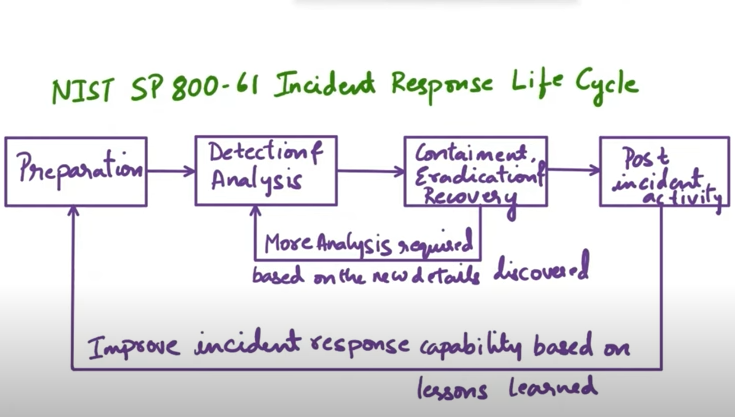 NIST SP 800-61 Incident Response Life Cycle
Preparation
Detection &
Analysis
Contaiment,
Eradication &
Recovery
Post
incident
activity
More Analysis required
based on the new details discovered
Improve incident response capability based on
lessons learned